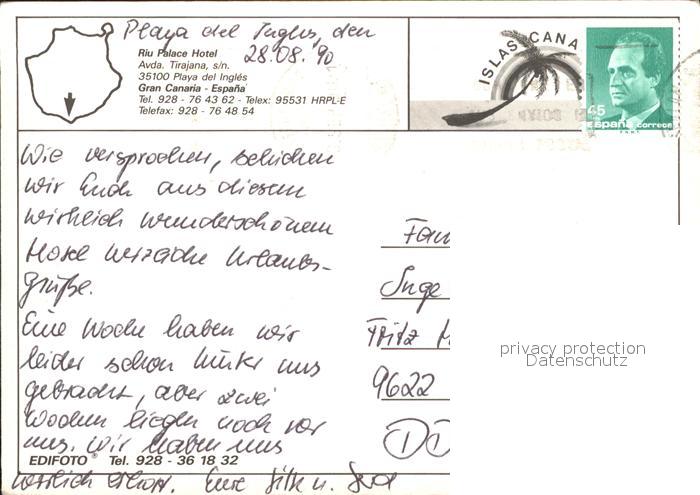 Playa del Ingles, den
28.08.90
Riu Palace Hotel
Avda. Tirajana, s/n.
35100 Playa del Inglés
Gran Canaria - España
Tel. 928 - 76 43 62 - Telex: 95531 HRPL-E
Telefax: 928 - 76 48 54
ISLAS CANA
45
españa correos
Wie versprochen, schicken
wir Euch aus diesem
wirklich wunderschönen
Hotel herzliche Urlaubs-
grüße.
Eine Woche haben wir
leider schon hinter uns
gebracht, aber zwei
Wochen liegen noch vor
uns. Wir haben uns
wirklich erholt. Eure
Fam
Inge
Fritz
9622
DD
privacy protection
Datenschutz
EDIFOTO® Tel. 928 - 36 18 32